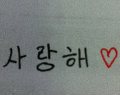 사랑해 ♡